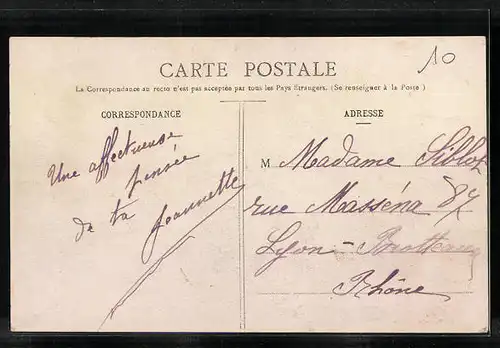 10
CARTE POSTALE
La Correspondance au recto n'est pas acceptée par tous les Pays Etrangers. (Se renseigner à la Poste)
CORRESPONDANCE
Une affectueuse
pensée
de ta
Jeannette
ADRESSE
M Madame Siblot
rue Masséna 87
Lyon-Brotteaux
Rhône